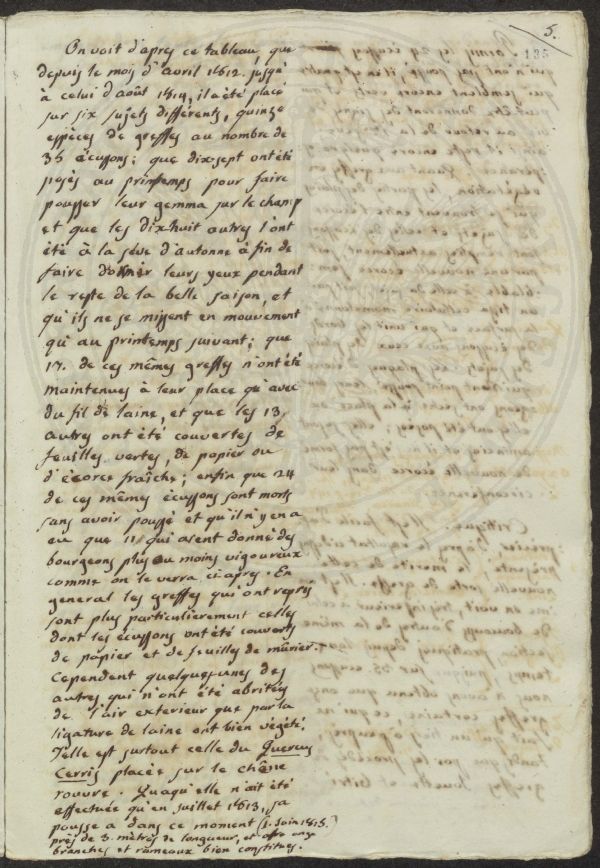 5.
135
On voit d'apres ce tableau, que
depuis le mois d'avril 1812. jusqé
à celui d'août 1814, il a été placé
sur six sujets différents, quinze
espèces de greffes au nombre de
35 écussons; que dix-sept ont été
posés au printemps pour faire
pousser leur gemma sur le champ
et que les dixhuit autres l'ont
été à la séve d'autonne à fin de
faire dormir leurs yeux pendant
le reste de la belle saison, et
qu'ils ne se missent en mouvement
qu'au printemps suivant; que
17. de ces mêmes greffes n'ont été
maintenues à leur place qu'avec
du fil de laine, et que les 13,
autres ont été couvertes de
feuilles vertes, de papier ou
d'écorce fraîche; enfin que 24
de ces mêmes écussons sont morts
sans avoir poussé et qu'il n'y en a
eu que 11 qui aient donné des
bourgeons plus ou moins vigoureux
comme on le verra ci apres. En
general les greffes qui ont repris
sont plus particulierement celles
dont les écussons ont été couverts
de papier et de feuilles de mûrier.
Cependent quelques-unes des
autres qui n'ont été abritées
de l'air exterieur que par la
ligature de laine ont bien végété.
Telle est surtout celle du Quercus
Cerris placée sur le chêne
rouvre. Quoiqu'elle n'ait été
effectuée qu'en juillet 1813, sa
pousse a dans ce moment (1. Juin 1815.)
près de 3 mètres de longueur, et
branches et rameaux bien constitués.